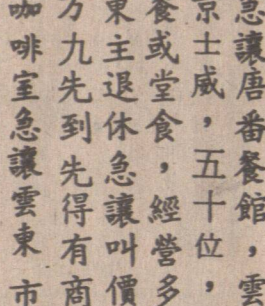 急讓唐番餐館，雲
京士威，五十位，
餐或堂食，經營多
東主退休急讓叫價
方九先到先得有商
咖啡室急讓雲東市